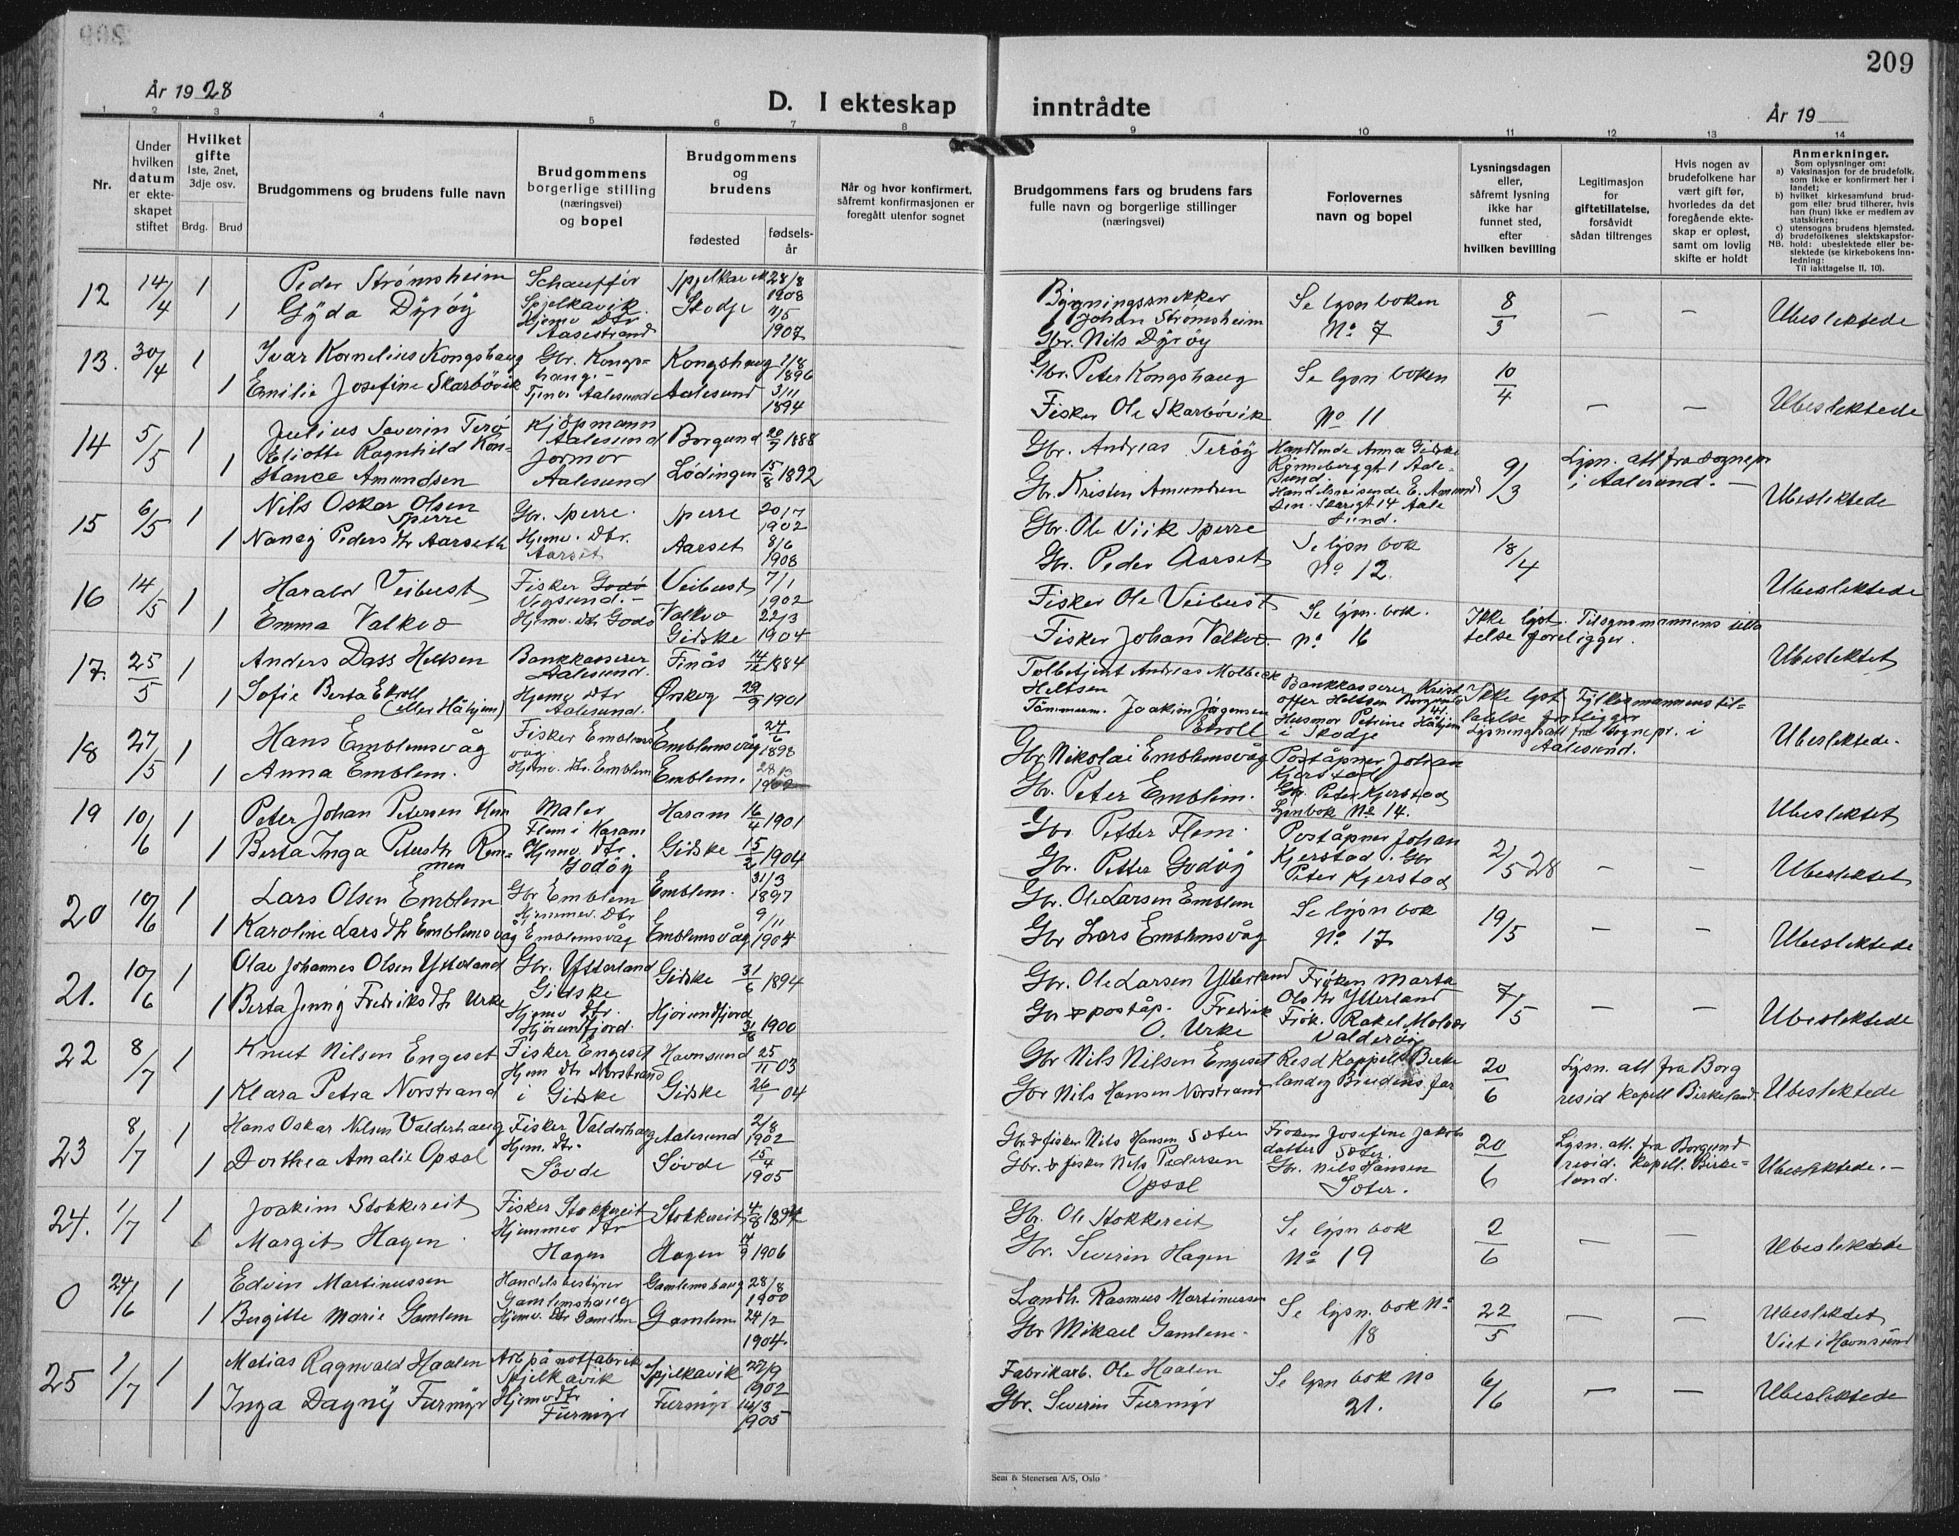 209
År 1928
D. I ekteskap
inntrådte
År 19
1 2 3 4 5 6 7 8 9 10 11 12 13 14
Nr.
Under hvilken datum er ekteskapet stiftet
Hvilket gifte
1ste, 2net, 3dje osv.
Brdg. Brud
Brudgommens og brudens fulle navn
Brudgommens borgerlige stilling (næringsvei) og bopel
Brudgommens og brudens
fødested
fødselsår
Når og hvor konfirmert, såfremt konfirmasjonen er foregått utenfor sognet
Brudgommens fars og brudens fars fulle navn og borgerlige stillinger (næringsvei)
Forlovernes navn og bopel
Lysningsdagen eller, såfremt lysning ikke har funnet sted, efter hvilken bevilling
Legitimasjon for giftetillatelse, forsåvidt sådan tiltrenges
Hvis nogen av brudefolkene har vært gift før, hvorledes da det foregående ekteskap er opløst, samt om lovlig skifte er holdt
Anmerkninger.
Som oplysninger om:
a) Vaksinasjon for de brudefolk, som ikke er konfirmert her i landet;
b) hvilket kirkesamfund brudgom eller brud tilhører, hvis han (hun) ikke er medlem av statskirken;
c) utensogns brudens hjemsted.
d) brudefolkenes slektskapsforhold: ubeslektede eller beslektede (se kirkebokens innledning:
NB. Til iakttagelse II, 10).
12 14/4 1 Peder Strømsheim Schauffør Spjelkavik Spjelkavik 28/8 1908 Bygningssnekker Johan Strømsheim Se lysn boken No 7 8/3 — — Ubeslektede
1 Gyda Dyrøy Hjemv Dtr. Aasestrand Skodje 7/5 1907 Gbr. Nils Dyrøy
13. 30/4 1 Ivar Kornelius Kongshaug Gbr. Kongshaug. Kongshaug 1/8 1896 Gbr. Peter Kongshaug Se lysn boken No 11 10/4 — — Ubeslektede
1 Emilie Josefine Skarbövik Tjenv. Aalesund Aalesund 3/11 1894 Fisker Ole Skarbövik
14 5/5 1 Julius Severin Terø Kjöpmann Aalesund Borgund 20/7 1888 Gbr. Andreas Terøy Handlende Anna Gidske Rønneberggt 1 Aalesund. 9/3 Lysn. att fra sognepr i Aalesund. — Ubeslektede
1 Eliotte Ragnhild Konstance Amundsen Jormor Aalesund Lödingen 15/8 1892 Gbr. Kristen Amundsen Handelsreisende E. Amundsen. Skarigt 14 Aalesund.
15 6/5 1 Nils Oskar Olsen Sperre Gbr. Sperre. Sperre 20/7 1902 Gbr. Ole Viik Sperre Se lysn bok No 12. 18/4 Ubeslektede
1 Nancy Peders dtr Aarseth Hjemv. Dtr. Aarset Aarset 8/6 1908 Gbr. Peder Aarset
16 14/5 1 Harald Veibust Fisker Godø Vigsund. Veibust 7/1 1902 Fisker Ole Veibust Se lysn. bok. no 16 Ikke lyst. Tilsognsmannens tillatelse foreligger. Ubeslektet
1 Emma Valkvo Hjemv. dtr Godö Valkvo Gidske 22/3 1904 Fisker Johan Valkvo.
17. 25/5 1 Anders Dass Heltsen Bankkasserer Aalesund. Finås 14/12 1884 Tolbetjent Andreas Molbeck Heltsen Bankkasserer Kristoffer Heltsen Ikke lyst. Fylkesmannens tillatelse foreligger Lysningsatt fra Sognepr. i Aalesund. Ubeslektede.
1 Sofie Berta Ekroll (eller Håhjem) Hjemv Dtr Aalesund. Ørskog 29/9 1901 Tömmerm. Joakim Jörgensen Ekroll Husmor Petrine Håhjem i Skodje
18 27/5 1 Hans Emblemsvåg Fisker Emblemsvåg Emblemsvåg 24/6 1898 Gbr Nikolai Emblemsvåg Poståpner Johan Kjerstad Ubeslektet
1 Anna Emblem. Hjemv. dtr. Emblem Emblem. Gbr. Peter Emblem. Gbr. Peter Kjerstad Lysnbok No 14.
19 10/6 1 Peter Johan Petersen Flem Maler Flem i Haram Haram 16/4 1901 Gbr Petter Flem. Poståpner Johan Kjerstad. Gbr Peter Kjerstad 2/5 28 — — Ubeslektet
1 Berta Inga Petersdtr Rømmen Hjemv. dtr. Godöy Gidske 15/2 1904 Gbr. Petter Godöy
20 10/6 1 Lars Olsen Emblem Gbr Emblem Emblem. 31/3 1897 Gbr. Ole Larsen Emblem Se lysn bok No 17 19/5 — — Ubeslektede
1 Karoline Lars dtr Emblemsvåg Hjemmev. Dtr Emblemsvåg Emblemsvåg 9/11 1904 Gbr Lars Emblemsvåg
21. 10/6 1 Olav Johannes Olsen Ytterland Gbr. Ytterland Gidske Gidske 31/6 1894 Gbr. Ole Larsen Ytterland Frøken Marta Ols dtr Ytterland 7/5 — — Ubeslektede
1 Berta Jenny Fredriks dtr Urke Hjemv dtr. Hjörundfjord. Hjörundfjord 31/8 1900 Gbr & poståp. Fredrik O. Urke Frök. Rakel Molvær Valderöy
22 8/7 1 Knut Nilsen Engeset Fisker Engeset Havnsund 25/11 03 Gbr Nils Nilsen Engeset Resd Kappell Birkeland og Brudens far 20/6 Lysn. att fra Borg resid kapell Birkeland. Ubeslektede
1 Klara Petra Norstrand Hjem dtr Norstrand i Gidske Gidske 26/1 04 Gbr Nils Hansen Norstrand
23 8/7 1 Hans Oskar Nilsen Valderhaug Fisker Valderhaug Aalesund 2/8 1902 Gbr. & fisker Nils Hansen Sæter Frøken Josefine Jakobsdatter Sæter. 20/6 Lysn. att. fra Borgund resid. kapell. Birkeland. Ubeslektede. —
1 Dorthea Amalie Opsal Hjem. dtr. Sövde Sövde 15/4 1905 Gbr. & fisker Nils Pedersen Opsal Gbr. Nils Hansen Sæter.
24. 1/7 1 Joakim Stokkereit Fisker Stokkereit Stokkereit 4/8 1894 Gbr. Ole Stokkereit Se lysn bok No 19 2/6 — — Ubeslektede
1 Margit Hagen. Hjemmev dtr Hagen Hagen 14/9 1906 Gbr. Severin Hagen
0 24/6 1 Edvin Martinussen Handelsbestyrer Gamlemshaug Gamlemshaug 28/8 1900 Landh. Rasmus Martinussen Se lysn. bok No 18 22/5 — — Ubeslektet Viet i Havnsund
1 Birgitte Marie Gamlem Hjemv. Dtr Gamlem Gamlem 24/2 1904. Gbr Mikael Gamlem.
25 1/7 1 Matias Ragnvald Haalen Arb på notfabrik Spjelkavik Spjelkavik 27/9 1902 Fabrikarb. Ole Haalen Se lysn bok No 21. 6/6 — — Ubeslektede
1 Inga Dagny Furmyr Hjemv dtr Furmyr Furmyr 14/3 1905 Gbr. Severin Furmyr
Sem & Stenersen A/S, Oslo